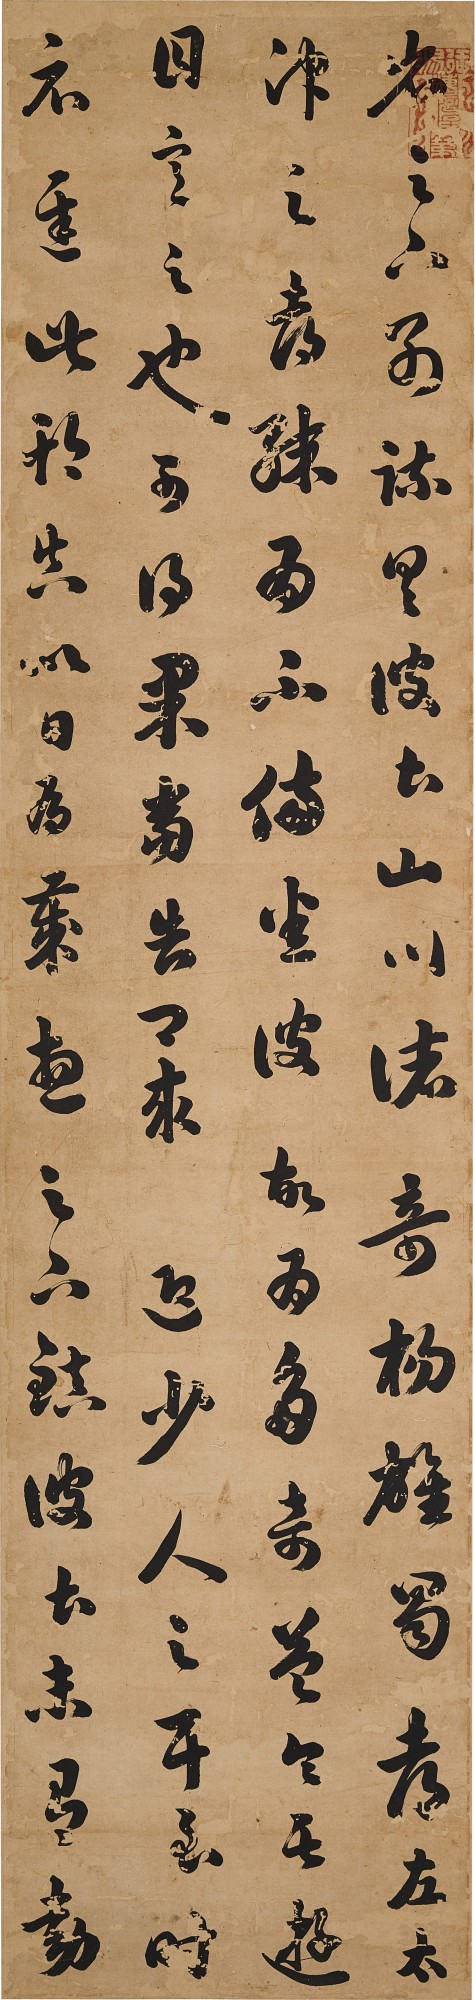 省足下別疏具彼土山川諸奇楊雄蜀都左太
沖三都殊為不備悉彼故為多奇益令其遊
目意足也可得果當告卿求迎少人足耳至時
示遲此期真以日為歲想足下鎮彼土未有動